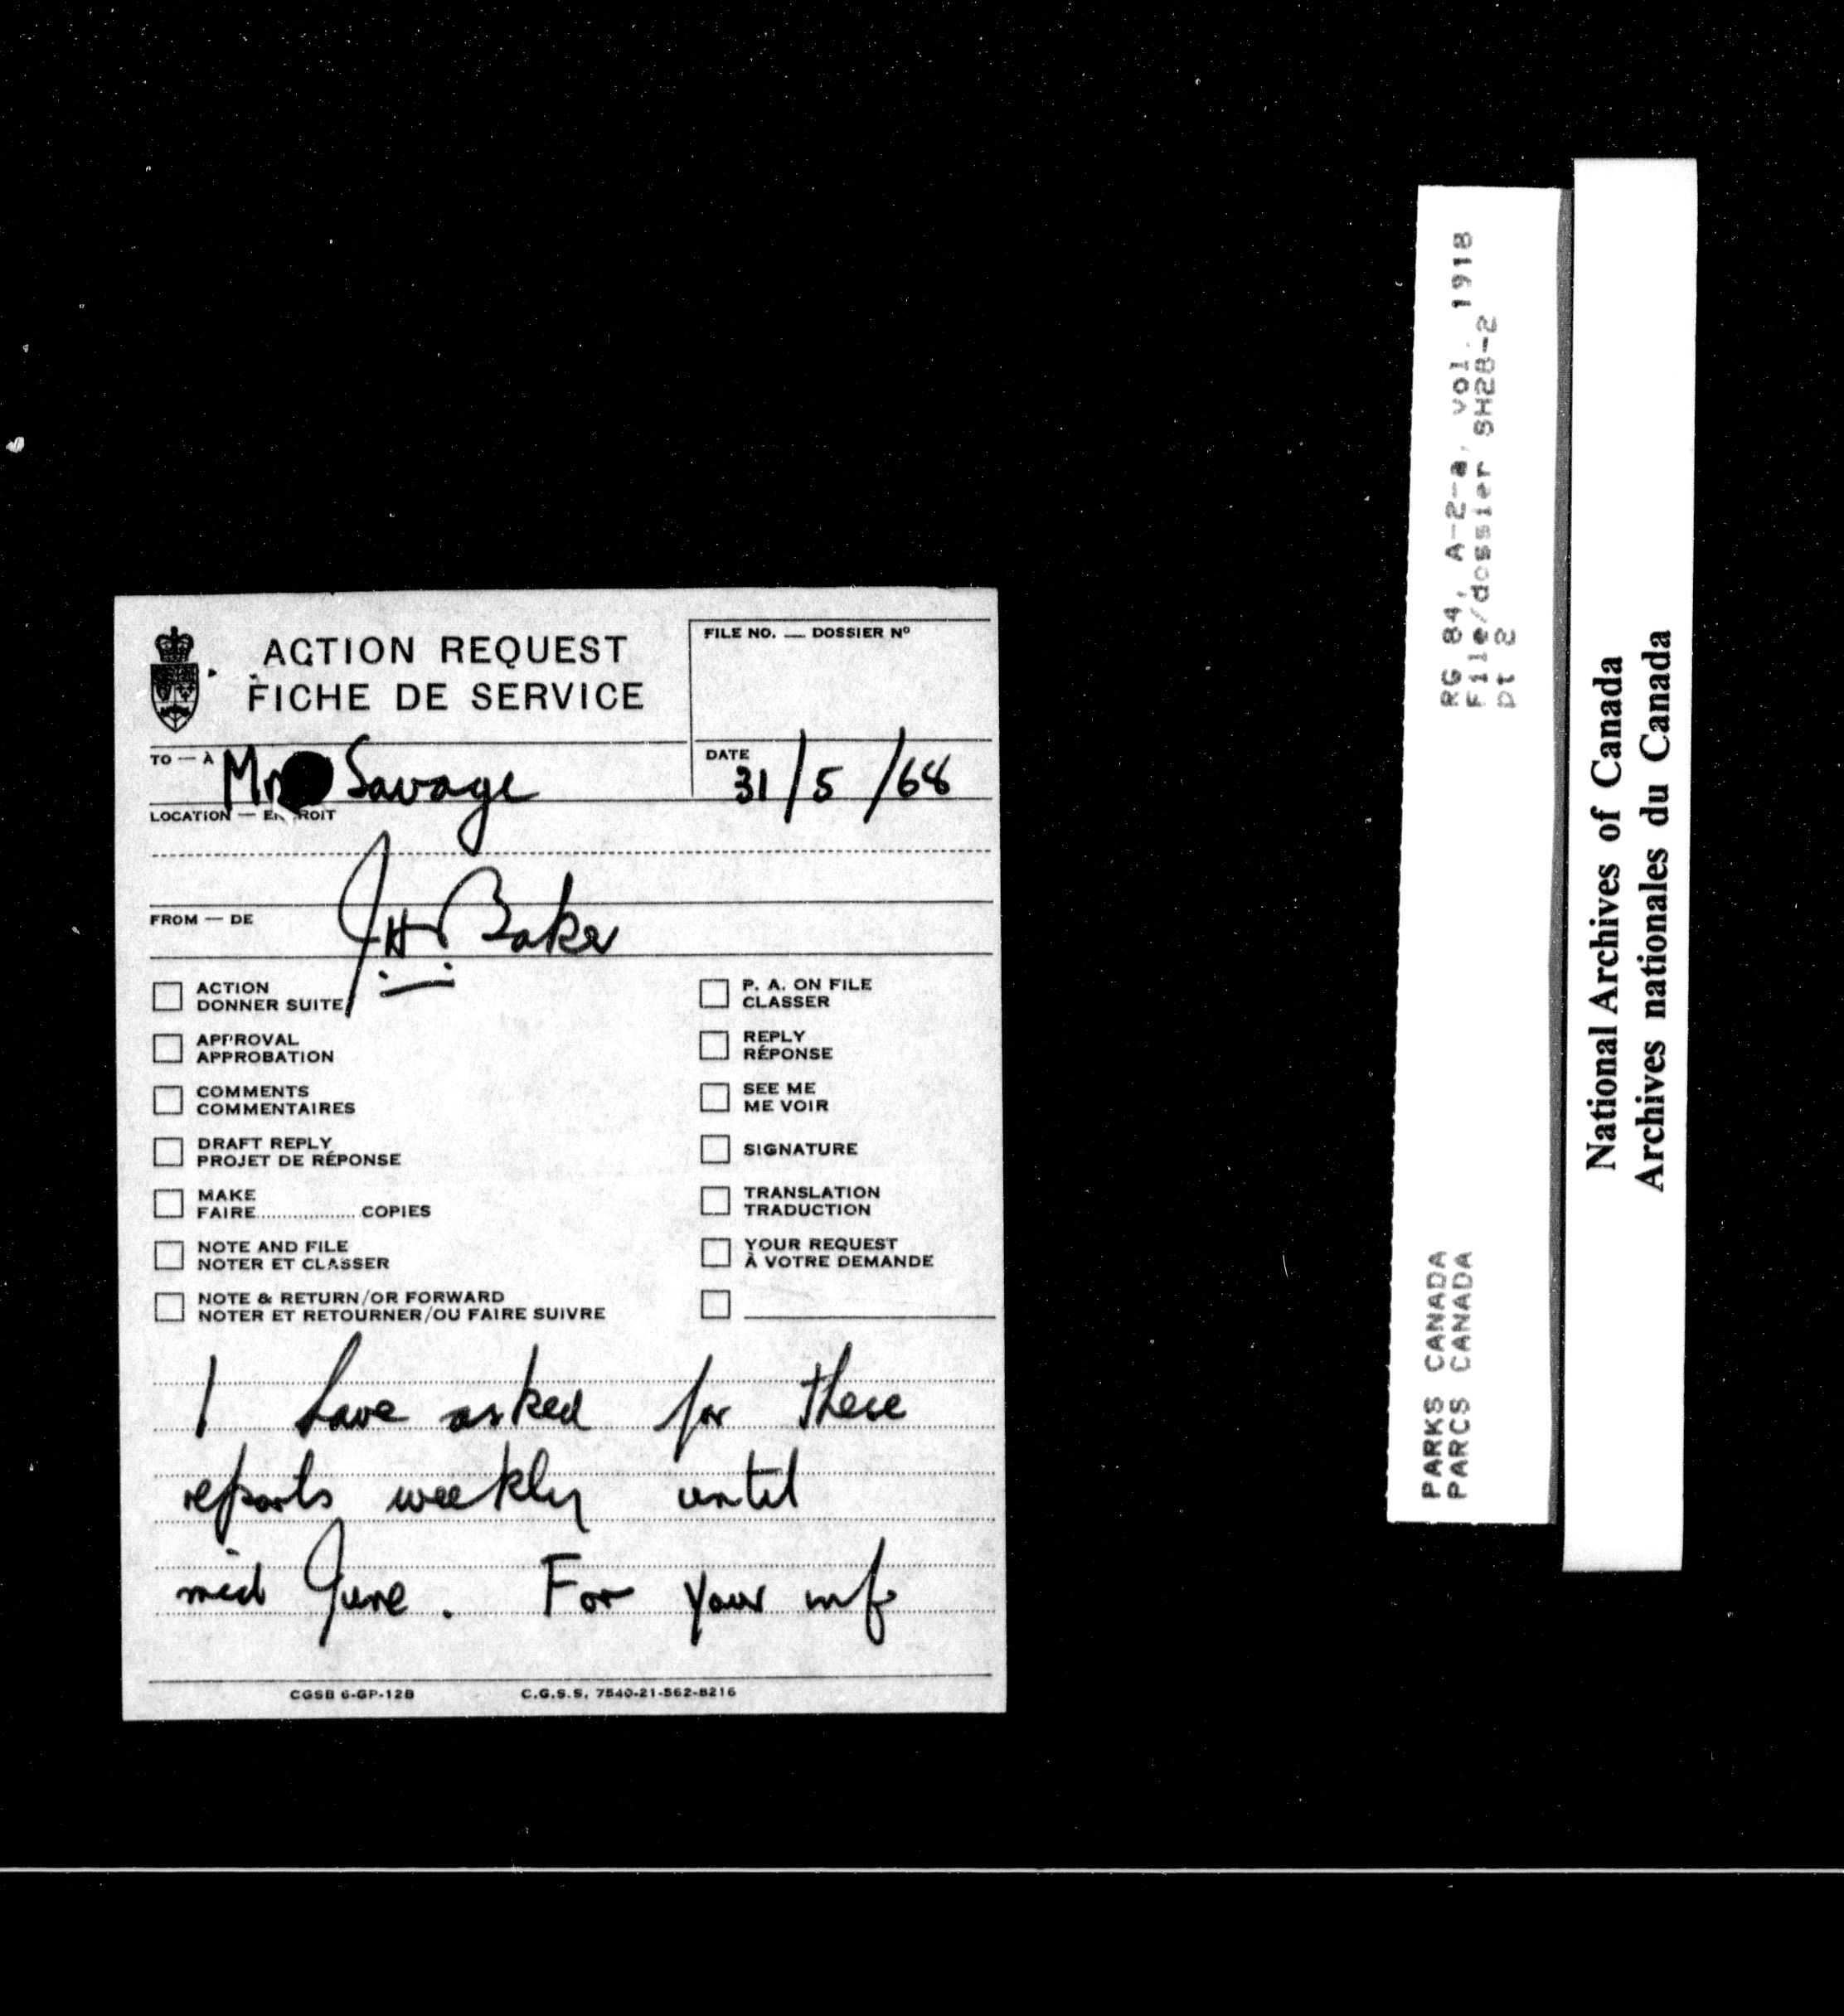 ACTION REQUEST
FICHE DE SERVICE
FILE NO. — DOSSIER Nº
TO — À Mr Savage
DATE 31/5/68
LOCATION — EN ROIT
FROM — DE JH Baker
ACTION
DONNER SUITE
APPROVAL
APPROBATION
COMMENTS
COMMENTAIRES
DRAFT REPLY
PROJET DE RÉPONSE
MAKE
FAIRE.................. COPIES
NOTE AND FILE
NOTER ET CLASSER
NOTE & RETURN/OR FORWARD
NOTER ET RETOURNER/OU FAIRE SUIVRE
P. A. ON FILE
CLASSER
REPLY
RÉPONSE
SEE ME
ME VOIR
SIGNATURE
TRANSLATION
TRADUCTION
YOUR REQUEST
À VOTRE DEMANDE
I have asked for these
reports weekly until
mid June. For your inf
CGSB 6-GP-12B C.G.S.S. 7540-21-562-8216
RG 84, A-2-a, vol. 1918
File/dossier SH28-2
pt 2
PARKS CANADA
PARCS CANADA
National Archives of Canada
Archives nationales du Canada